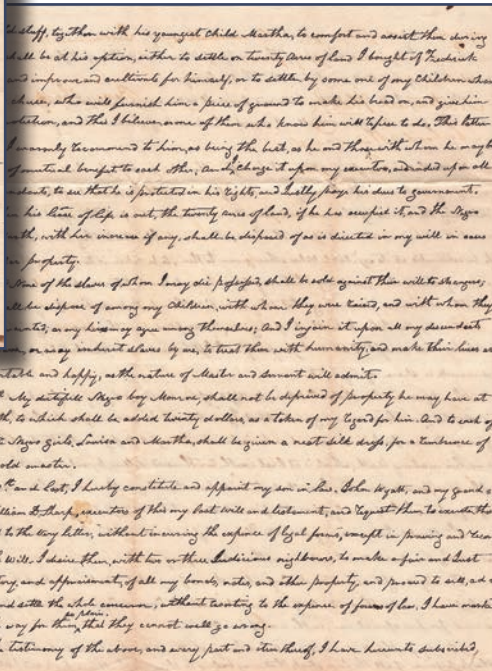 d staff, together with his youngest child Martha, to comfort and assist them during
shall be at his option, either to settle on twenty acres of land I bought of Frederick
and improve and cultivate for himself, or to settle by some one of my Children whom
chuse, who will furnish him a piece of ground to make his bread on, and give him
protection, and this I believe none of them who know him will refuse to do. This latter
I warmly recommend to him, as being the best, as he and those with whom he may be
of mutual benefit to each other; And I charge it upon my executors, and indeed upon all
to see that he is protected in his rights, and Justly pays his dues to government.
his lease of life is out, the twenty acres of land, if he has occupied it, and the Negro
with her increase if any, shall be disposed of as is directed in my will in cases
property.
None of the slaves of whom I may die possessed, shall be sold against their will to strangers;
be dispose of among my Children, with whom they were raised, and with whom they
or as my heirs may agree among themselves; And I injoin it upon all my descendants
or may inherit slaves by me, to treat them with humanity, and make their lives as
and happy, as the nature of Master and servant will admit.
My Negro boy Monroe, shall not be deprived of property he may have at
to which shall be added twenty dollars, as a token of my regard for him. And to each of
Negro girls, Louisa and Martha, shall be given a neat silk dress, for a remembrance of
old master.
and last, I hereby constitute and appoint my son in law, John Wyatt, and my grand s
William D. Tharp, executors of this my last will and testament, and request them to execute the
to the very letter, without incurring the expence of legal forms, except in proving and
Will. I desire them, with two or three Judicious neighbours, to make a fair and Just
and appraisement, of all my bonds, notes, and other property, and proceed to sell, and
and settle the whole concern, without resorting to the expence of forms of law, I have marked
so plain
way for them, that they cannot well go wrong.
testimony of the above, and every part and item thereof, I have hereunto subscribed,